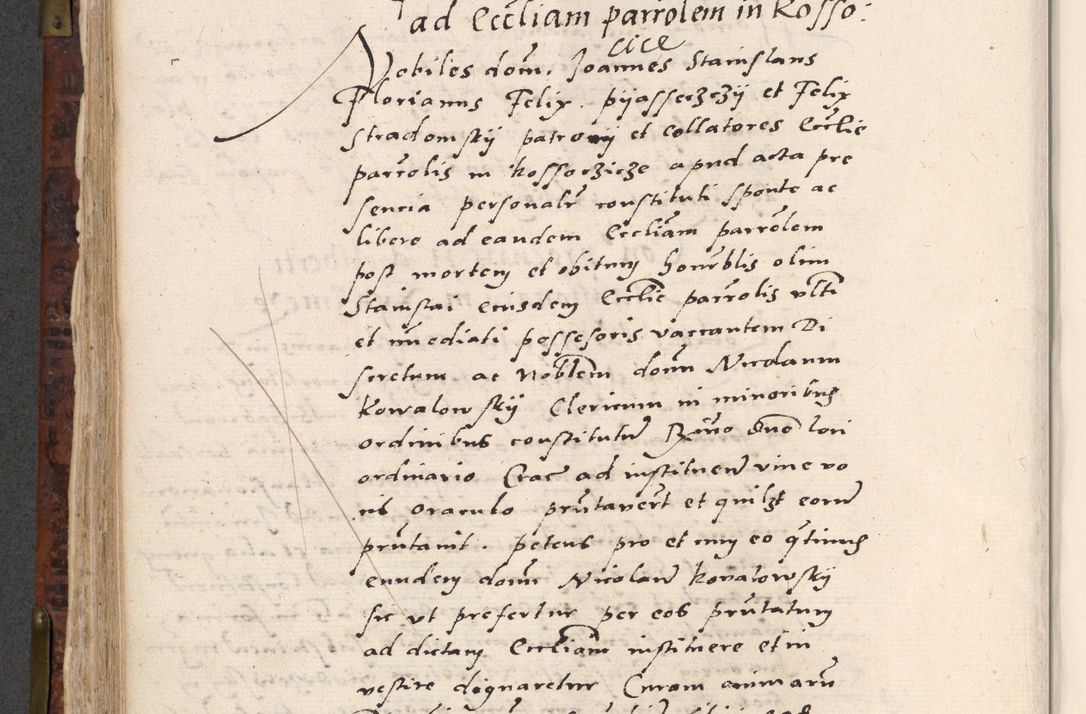 ad Eccliam parrolem in Kosso:
cice
Nobiles domi. Joannes Stanislaus
Florianus Felix. pijasseczczij et Felix
stradomskij patronij et collatores Ecclie
parrolis in Kossoczicze apud acta pre
sencia personalr constituti sponte ac
libere ad eandem Eccliam parrolem
post mortem et obitum honrblis olim
Stanislai eiusdem Ecclie parrolis vlti
et immediati possesoris vaccantem Di
scretum ac Noblem domn Nicolaum
Kowalowskij Clericum in minoribus
ordinibus constitutu Rmo duo lori
ordinario Crac ad instituen vine vo
cis oraculo pruntavert et quilzt eorum
pruntavit. petens pro et cum eo qtinus
eundem domn Nicolaum Kovalowskij
sic ut prefertur per eos pruntatum
ad dictam Eccliam instituere et in
vestire dignaretur Curam animarum